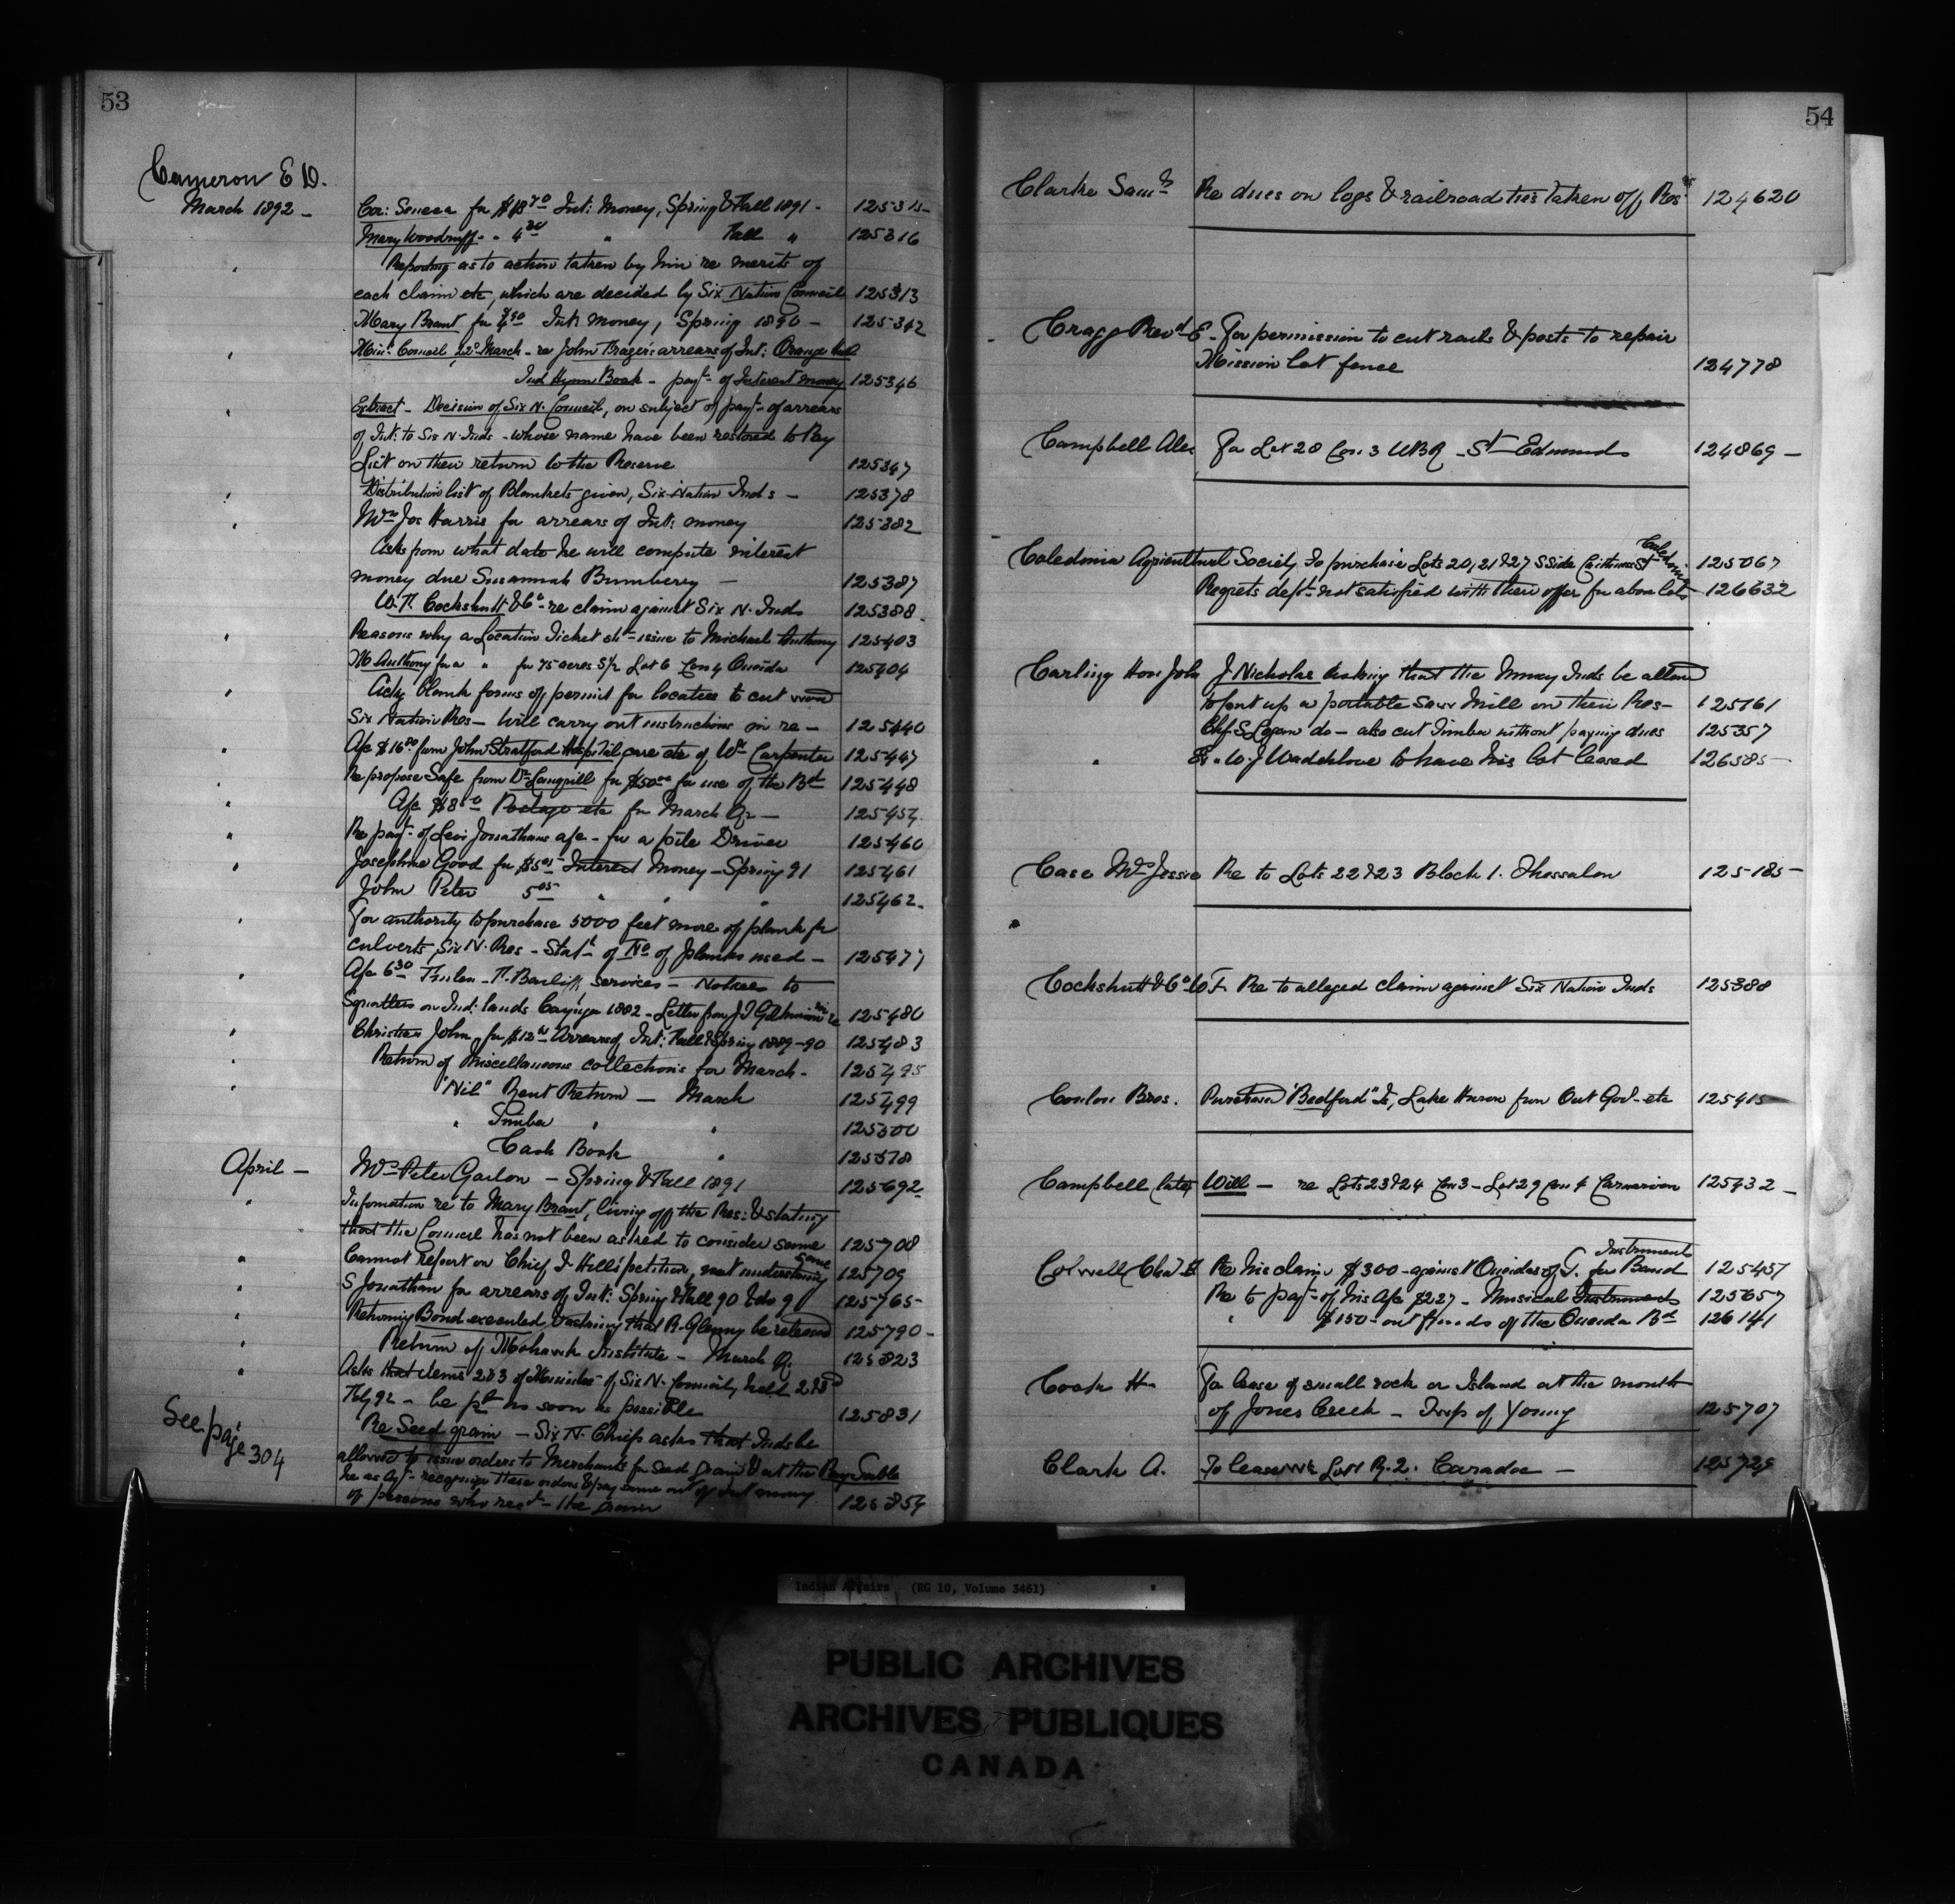 53
Cameron E D.
March 1892 - Cor: Seneca for $18 70 Int: Money, Spring & Fall 1891 - 125315
Mary Woodruff - " 4 20 " Fall " 125316
Reporting as to action taken by him re merits of
each claim etc, which are decided by Six Nation Council 125313
Mary Brant for Int: money, Spring 1890 - 125342
Mins Council, 22d March - re John Frazer's arrears of Int: Orange
Ind Hymn Book - payt of Interest money 125346
Extract - Decision of Six N. Council, on subject of payt of arrears
of Int: to Six N. Inds - whose name have been restored to Pay
List on their return to the Reserve 125347
Distribution list of Blankets given, Six Nation Inds - 125378
Mrs Jos Harris for arrears of Int: money 125382
Asks from what date he will compute interest
money due Susannah Bumberry - 125387
W. F. Cockshutt & Co - re claim against Six N. Inds 125388
Reasons why a Location Ticket shd issue to Michael Anthony 125403
M Anthony for a " for 75 acres S/2 Lot 6 Con 4 Oneida 125404
Ackg blank forms of permit for locatees to cut wood
Six Nation Res - Will carry out instructions in re - 125440
A/c $16 80 from John Stratford Hospital care etc of Wm Carpenter 125447
Re propose Safe from Dr Langrill for $50 00 for use of the Bd 125448
A/c $8 Postage etc for March Qr - 125454
Re payt of Levi Jonathans a/c - for a pile Driver 125460
Josephine Good for $5 05 Interest Money - Spring 91 125461
John Peter 5 05 " " " 125462
For authority to purchase 5000 feet more of plank for
culverts, Six N. Res - Statt of No of planks used - 125477
A/c 6 30 services - Notices to
Squatters on Ind: lands Cayuga 1892 - Letter from J. re 125480
Christian John for $12 Arrears of Int: Fall & Spring 1889-90 125483
Return of Miscellaneous collections for March - 125495
"Nil" Rent Return - March 125499
" Timber " " 125500
Cash Book " 125578
April - Mrs Peter Garlon - Spring & Fall 1891 125692
Information re to Mary Brant, living off the Res: & stating
that the Council has not been asked to consider same 125708
Cannot report on Chief J Hill's petition, not understanding same 125709
S Jonathan for arrears of Int: Spring & Fall 90 & do 91 125765
Returning Bond executed, & asking that R. Glenny be released 125790
Return of Mohawk Institute - March Q. 125823
Asks that items 2 & 3 of Minutes of Six N. Council, held 2
Feby 92 - be pd as soon as possible 125831
Re Seed grain - Six N. Chiefs asks that Inds be
allowed to issue orders to Merchants for Seed Grain & at the Pay Table
he as Agt recognize these orders & pay same out of Int money
of persons who recd - the grain 125854
See page 304
54
Clarke Saml Re dues on logs & railroad ties taken off Res 124620
Cragg Revd E - For permission to cut rails & posts to repair
Mission Lot fence 124778
Campbell Alex For Lot 28 Con: 3 WBR - St Edmunds 124869 -
Caledonia Agricultural Society To purchase Lots 20, 21 & 27 S Side Caithness St Caledonia 125067
Regrets dept not satisfied with their offer for above lots 126632
Carling Hon John J Nicholas asking that the Munsey Inds be allowed
to put up a portable Saw Mill on their Res - 125161
Chf. S. Logan do - also cut Timber without paying dues 125357
" W. J Waddilove to have his lot leased 126585
Case Mrs Jessie Re to Lots 22 & 23 Block 1. Thessalon 125185 -
Cockshutt & Co W F. Re to alleged claim against Six Nation Inds 125388
Conlon Bros. Purchase "Bedford" Is, Lake Huron from Ont Govt - etc 125415
Campbell (late) Will - re Lots 23 & 24 Con 3 - Lot 29 Con 4 Carnarvon 125432 -
Colwell Chas E Re his claim $300 - against Oneidas of T. for Band Instruments 125457
Re to payt of his A/c $227 - Musical Instruments 125657
" $150 - out funds of the Oneida Bd 126141
Cook H - For lease of small rock or Island at the mouth
of Jones Creek - Twp of Young 125707
Clark A. To lease W½ Lot 1 R. 2. Caradoc - 125729
Indian Affairs (RG 10, Volume 3461)
PUBLIC ARCHIVES
ARCHIVES PUBLIQUES
CANADA